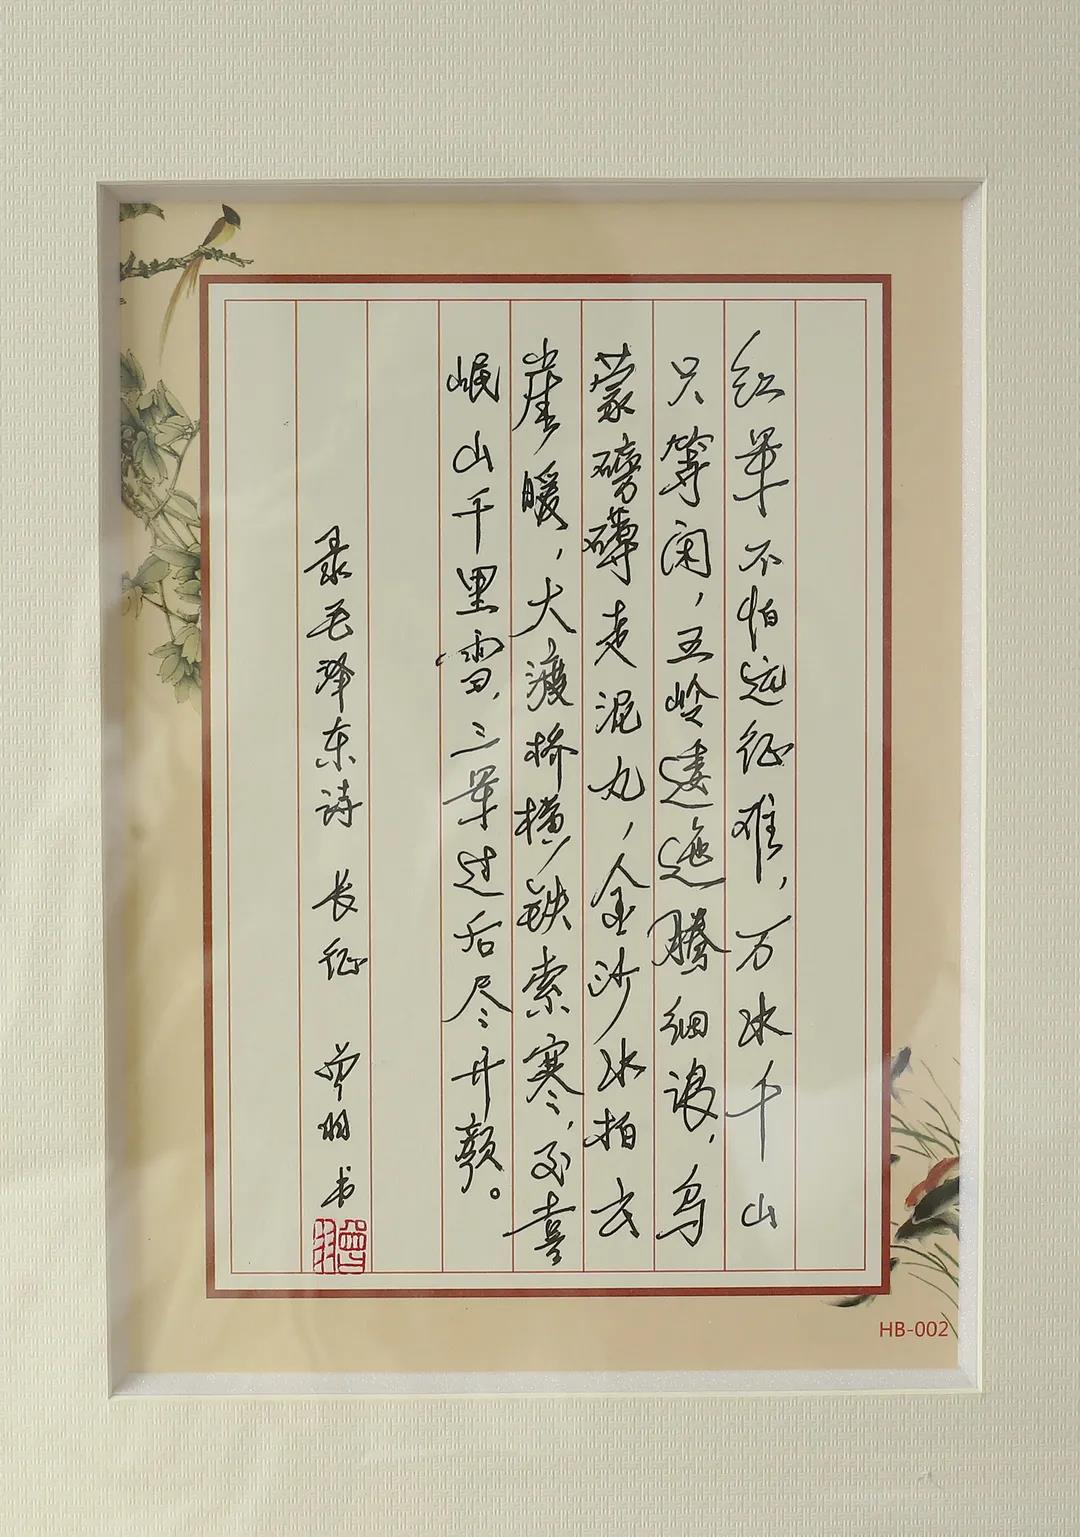 红军不怕远征难，万水千山
只等闲，五岭逶迤腾细浪，乌
蒙磅礴走泥丸，金沙水拍云
崖暖，大渡桥横铁索寒，更喜
岷山千里雪，三军过后尽开颜。
录毛泽东诗 长征 曾羽书
曾羽
HB-002